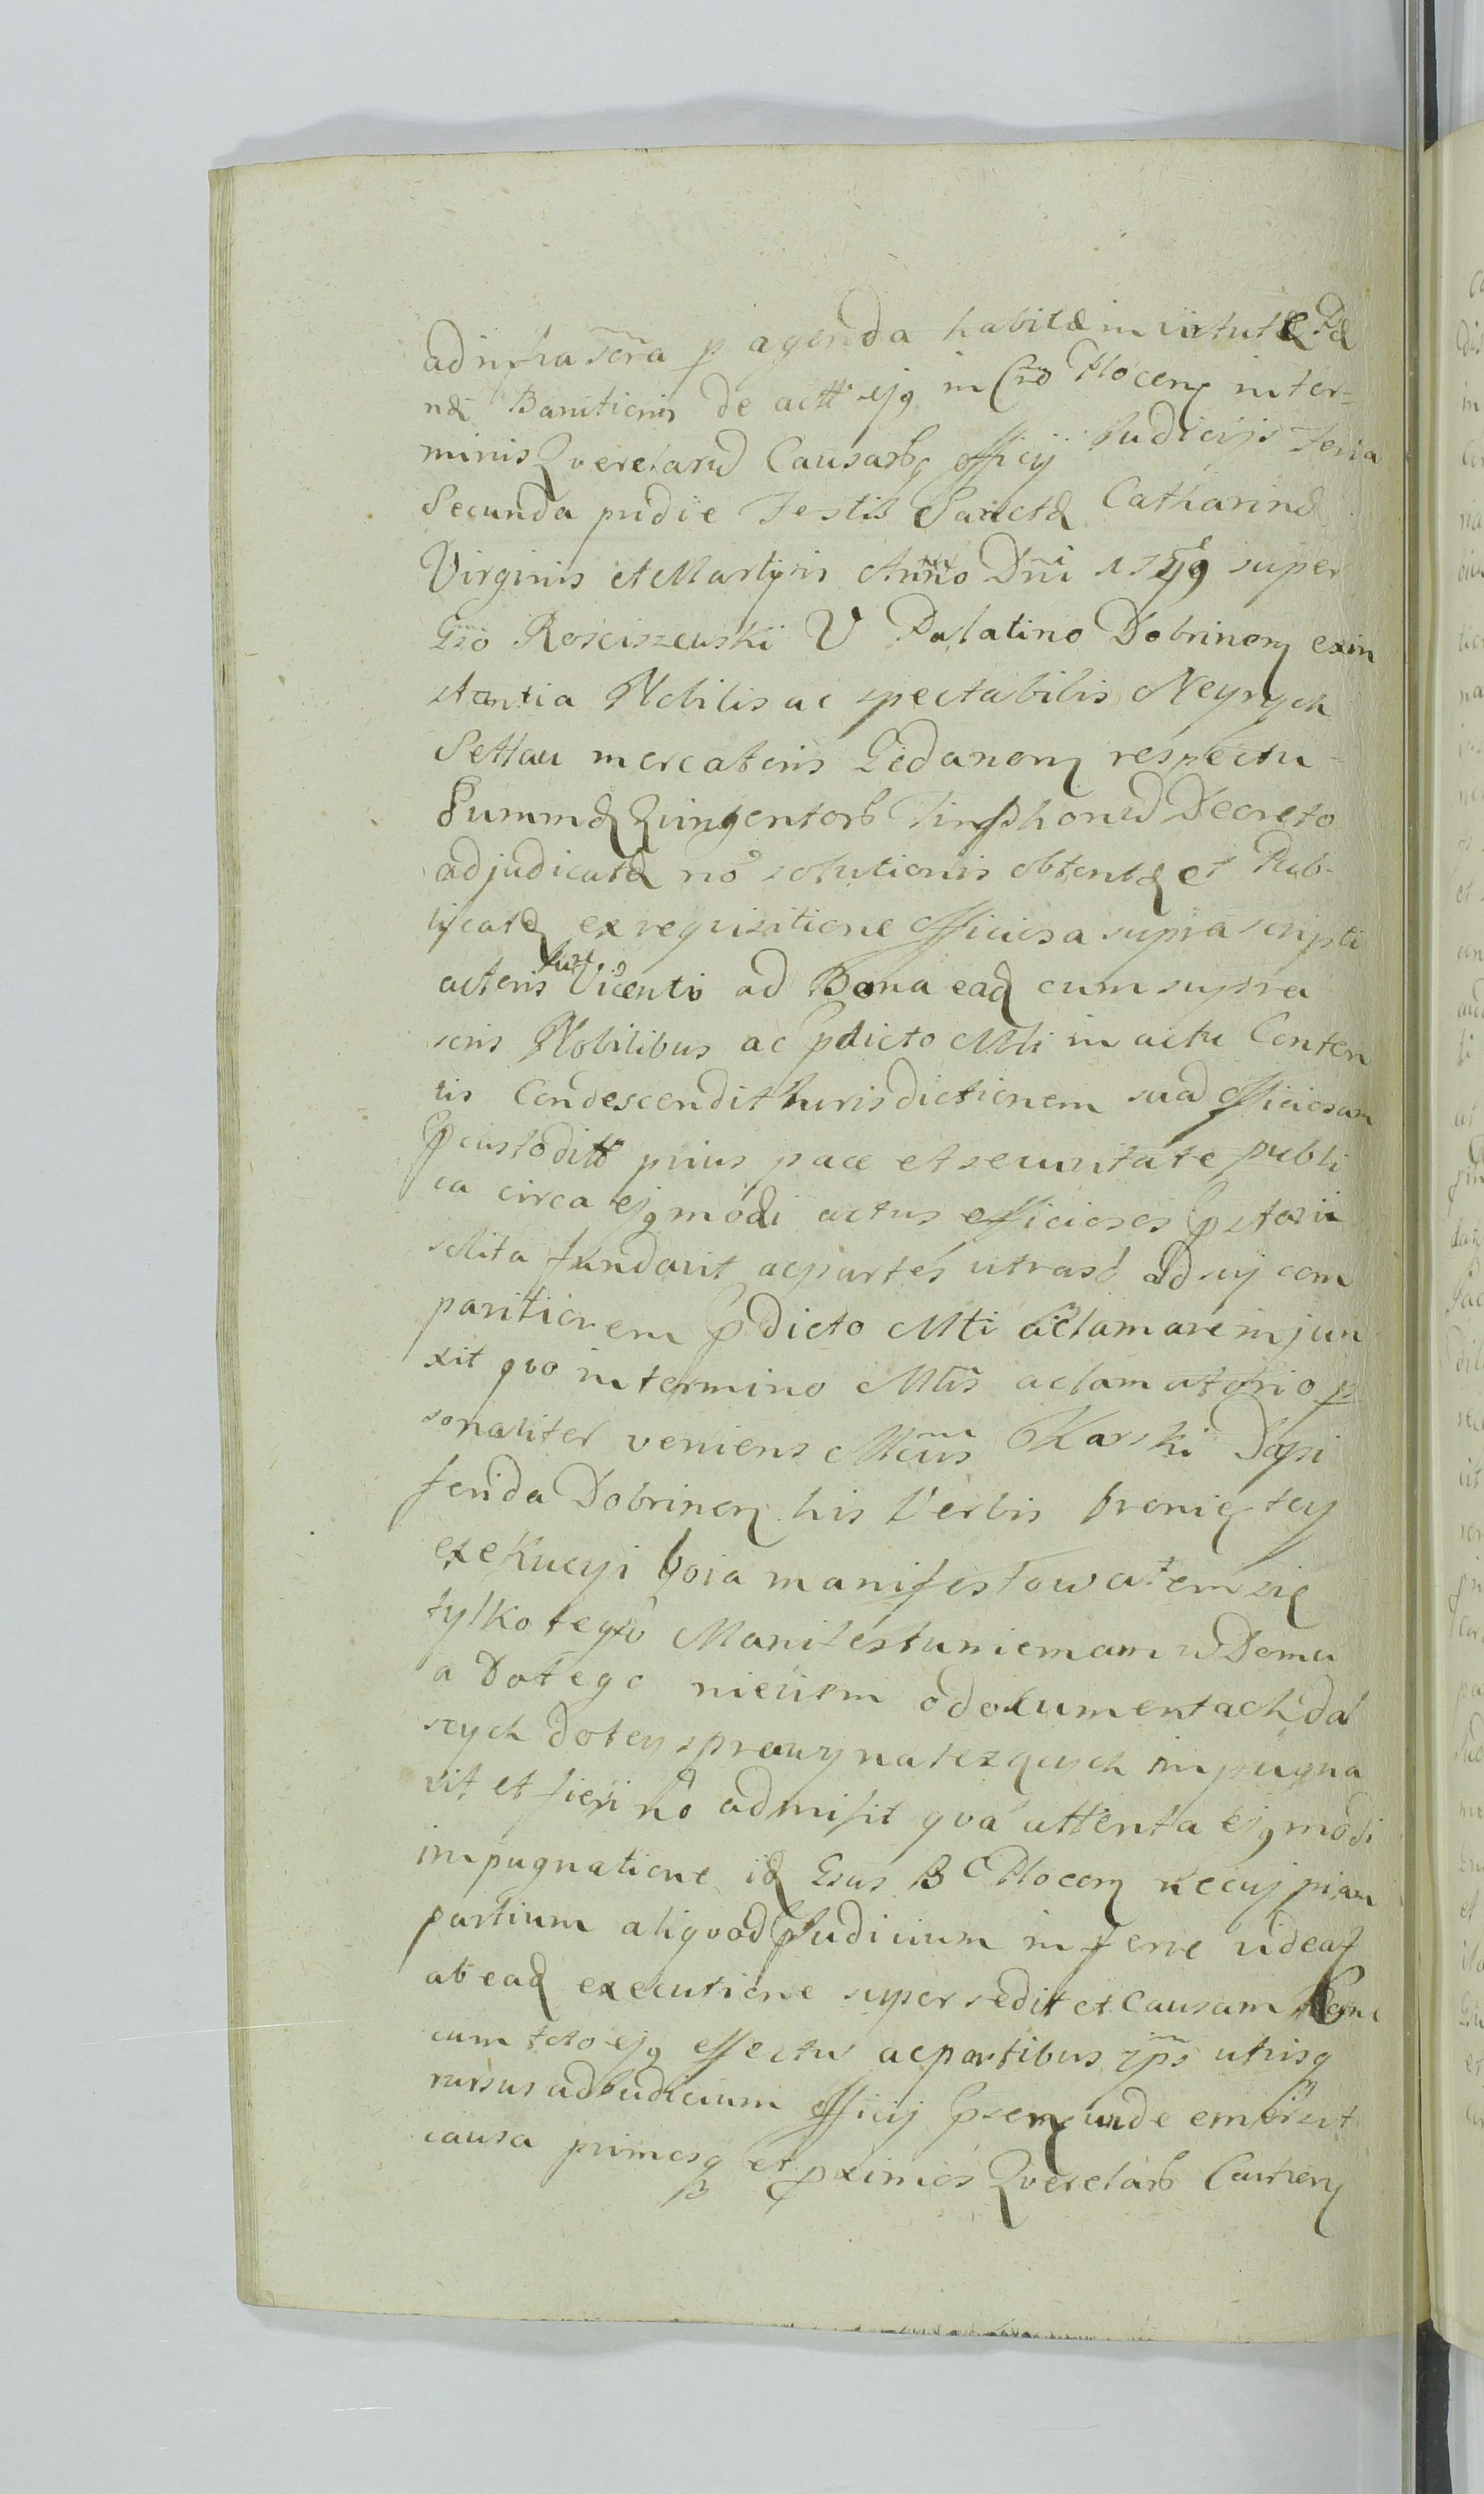 ad infra scra p agenda habitæ in virtute Pœ
næ Banitionis de actt ejq in Cro Plocenq in ter=
minis Querelarū Causarbq officij Judicijs Feria
Secunda pridie Festis Sanctæ Catharinæ
Virginis et Martyris Anno Dni super
Gso Rosciszewski V Palatino Dobrinenq exin
stantia Nobilis ac spectabilis Neyrych
Settau mercatoris Gedanenq respectu
Summæ Quingentorb Timphonū Decreto
adjudicatæ nō solutionis obtentæ et Pub-
licatæ ex requisitione officiosa supra scripti
actoris Jure Vicenti ad Bona eadq cum supra
scris Nobilibus ac pdicto Mli in actu Conten
tis Condescendit Jurisdictionem suā officiosam
pcustodita prius pace et securitate publi
ca circa ejqmodi actus officiosos pstari
solita fundavit ac partes utrasq ad uj com
paritionem pdicto Mli aclamare injun
xit quo in termino Mlis aclamatorio p
sonaliter veniens Mcus Karski Dapi
ferida Dobrinenq his Verbis bronię tey
exekucyi boia manifestowałem się
tylko tego Manifestu niemam w Domu
a Dotego niewiem o dokumentach dal
szych dotey sprawy należących impugna
vit et fieri nō admisit qva attenta ejqmodi
impugnatione idq Gsus B C Plocenq ne cuj piam
partium aliqvod pjudicium inferre videat
ab eadq executione supersedit et Causam hanc
cum toto ejq effectu ac partibus ips utrisq
rursus ad Judicium officij psenq unde emersit
causa primosq et pximos Querelarb Castren